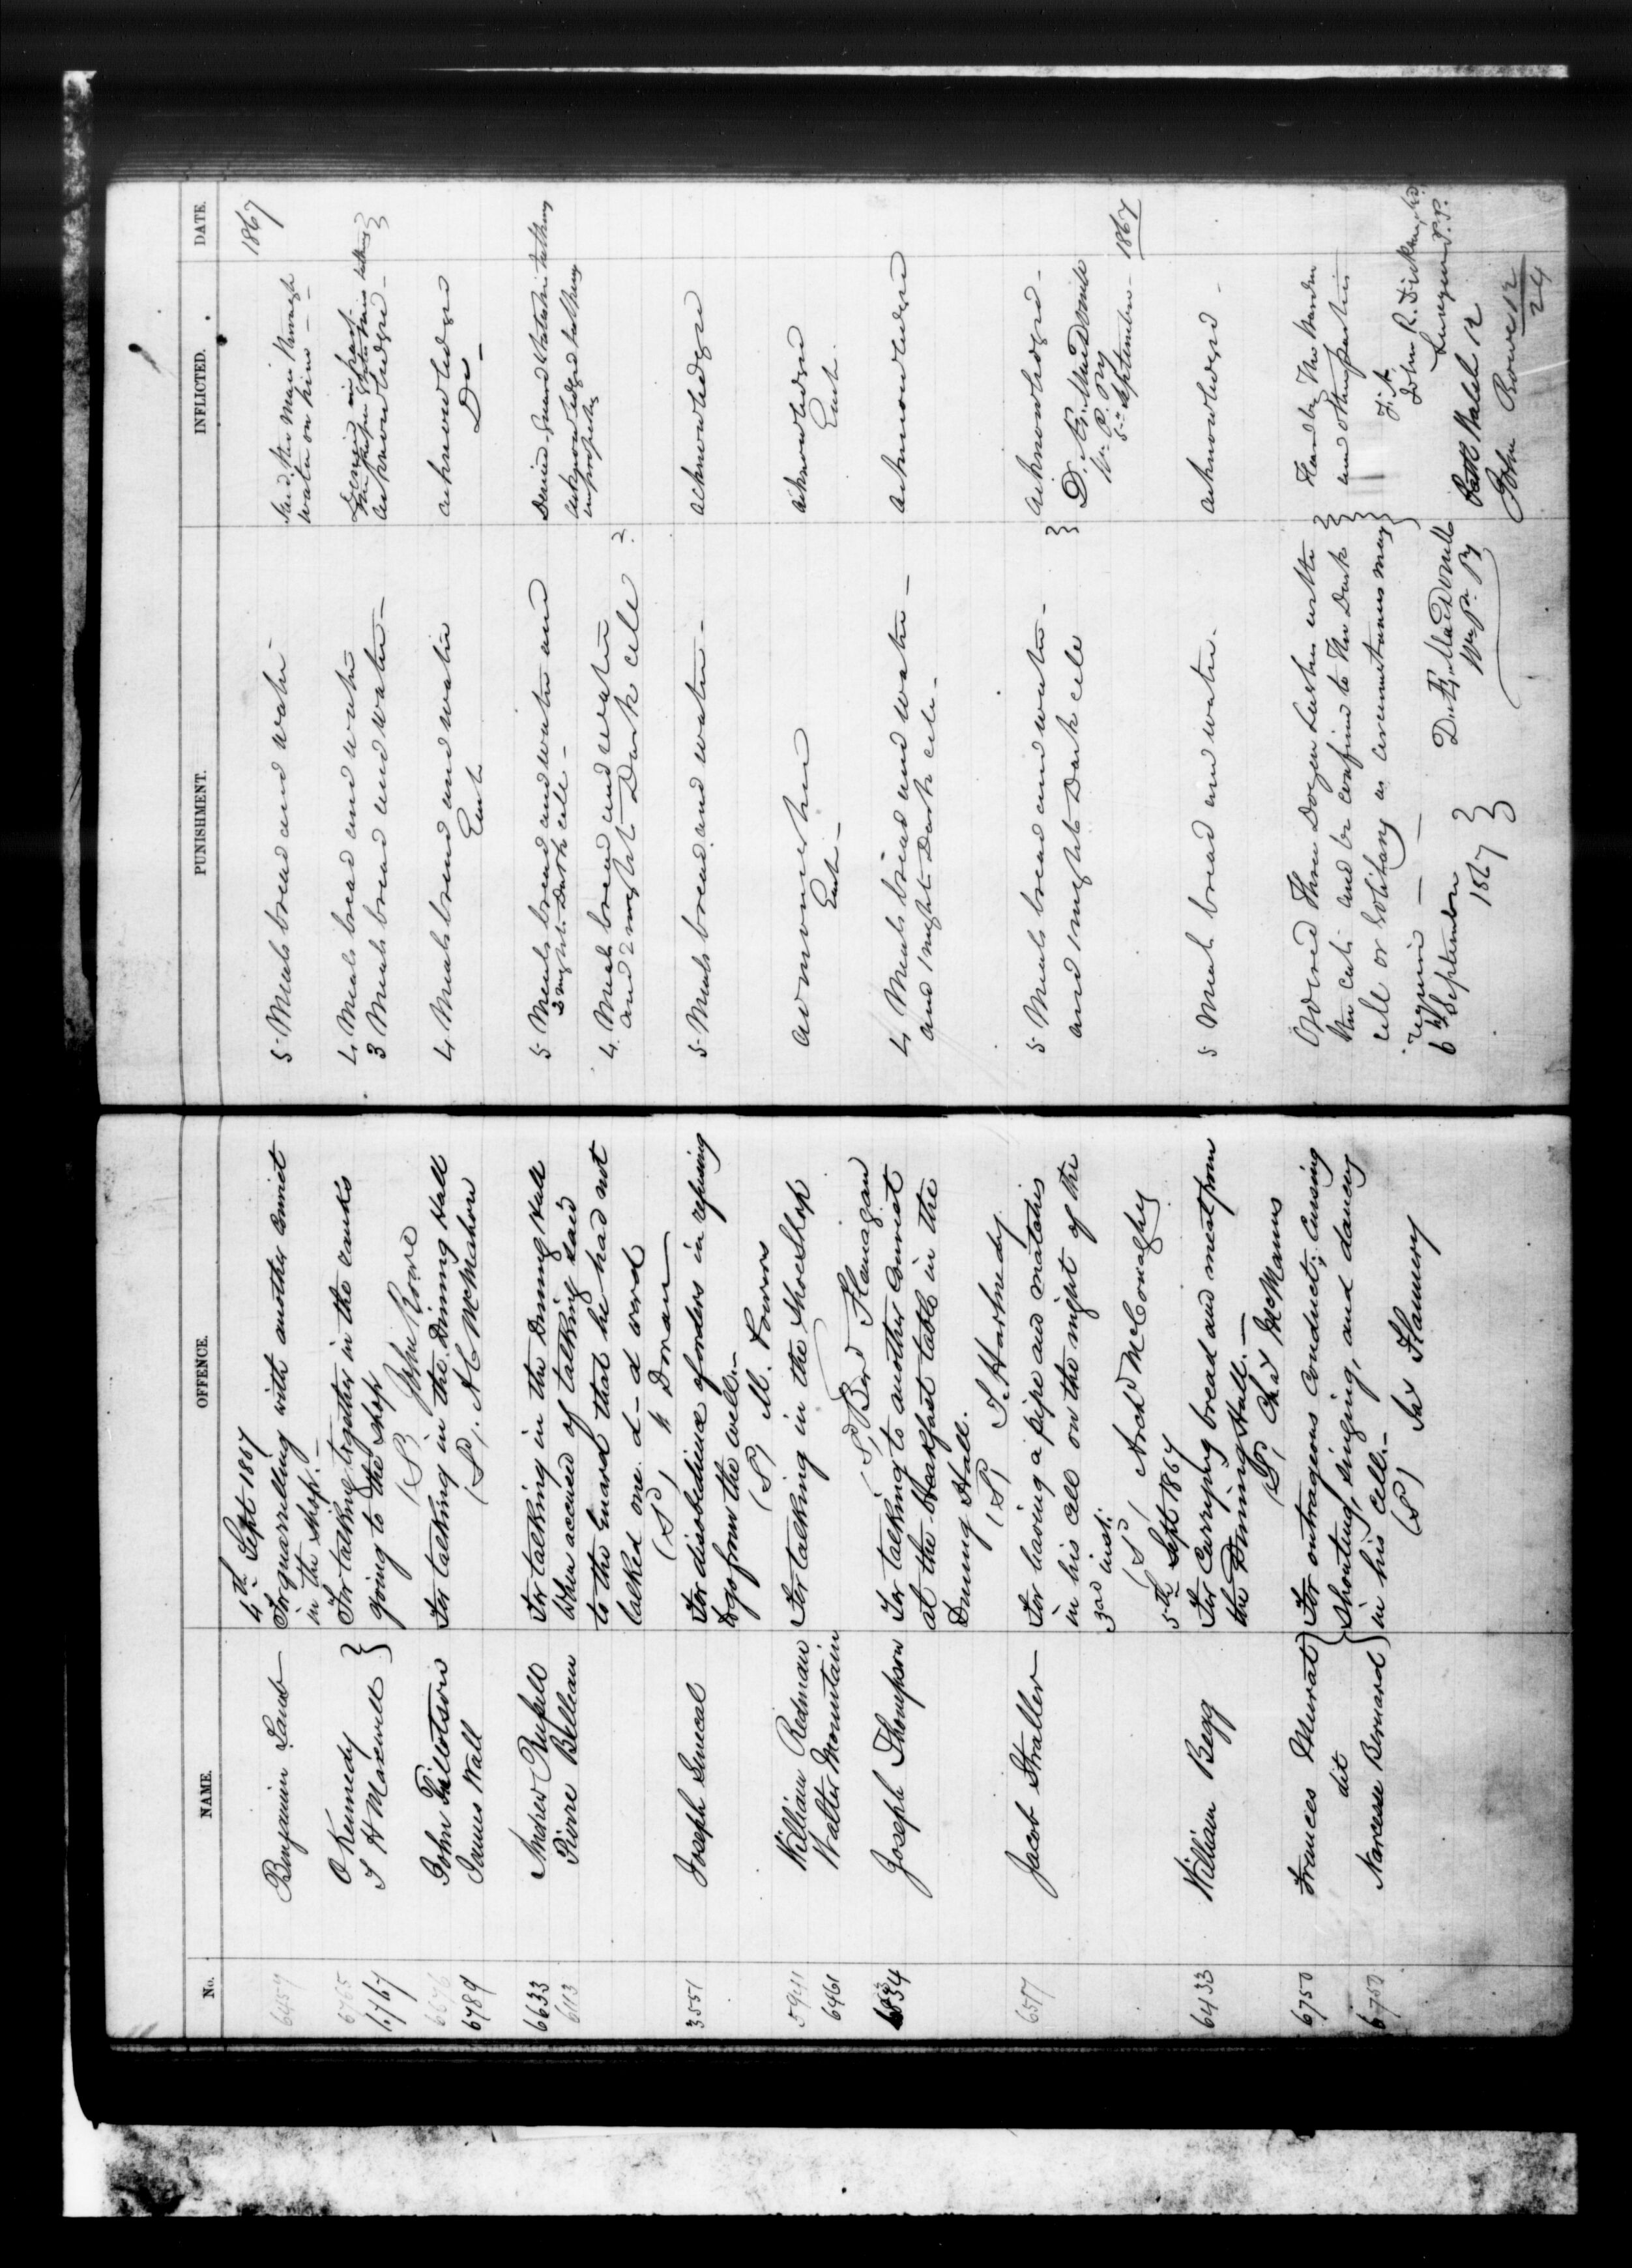 No. NAME. OFFENCE. PUNISHMENT. INFLICTED. DATE.
4th Sept 1867
1867
6459 Benjamin Laub For quarrelling with another convict 5 Meals bread and water Said the man threw
in the shop.— water on him —
6765 O Kennedy For talking together in the ranks 4 Meals bread and water Denied in part
1767 T H Maxwell } going to the shop 3 Meals bread and water — acknowledged —
(S) John Rowe
6676 John Tillotson For talking in the Dining Hall 4 Meals bread and water acknowledged
6789 James Wall (S), N C McMahon Each Do —
6633 Andrew Russell For talking in the Dining Hall 5 Meals bread and water and Denied
6113 Pierre Belleau When accused of talking said 2 nights Dark cell — acknowledged talking
to the Guard that he had not 4 Meals bread and water improperly
talked one d—d word and 2 nights Dark cell
(S), Doran
3551 Joseph Senecal For disobedience of orders in refusing 5 Meals bread and water — acknowledged
to go from the well.—
(S) M. Powers
5941 William Redman For talking in the Shoe Shop admonished acknowledged
6461 Walter Mountain Each — Each.
(S) Bernd Flanagan
6834 Joseph Thompson For talking to another Convict 4 Meals bread and water — acknowledged
at the breakfast table in the and 1 night Dark cell —
Dining Hall.
(S) T. Hartnedy.
6517 Jacob Straller For having a pipe and matches 5 Meals bread and water — } acknowledged —
in his cell on the night of the and 1 night Dark cell D. Æ. MacDonell
3rd inst: W. P. Py
(S), Archd McConaghy 5th September — 1867
5th Sept 1867
6433 William Begg For Carrying bread and meat from 5 Meals bread and water. acknowledged —
the Dining Hall.—
(S) Chas McManus
6750 Frances Murat For outrageous conduct; Cursing Ordered Three Dozen Lashes with
dit Shouting, singing, and dancing the cats and be confined to the Dark
6750 Narcesse Bernard in his cell.— cell or Solitary as circumstances may
(S) Jas Flannery require —
6th September 1867 D. Æ. MacDonell
W. P. Py
John R. Dickson, M.D.
Surgeon P.P.
Patk Walsh 12
John Rowe 12
24